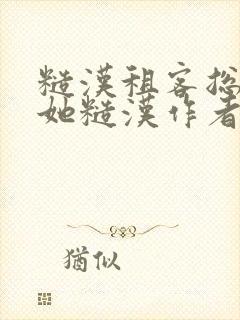 糙漢租客总
她糙漢作者
猶似